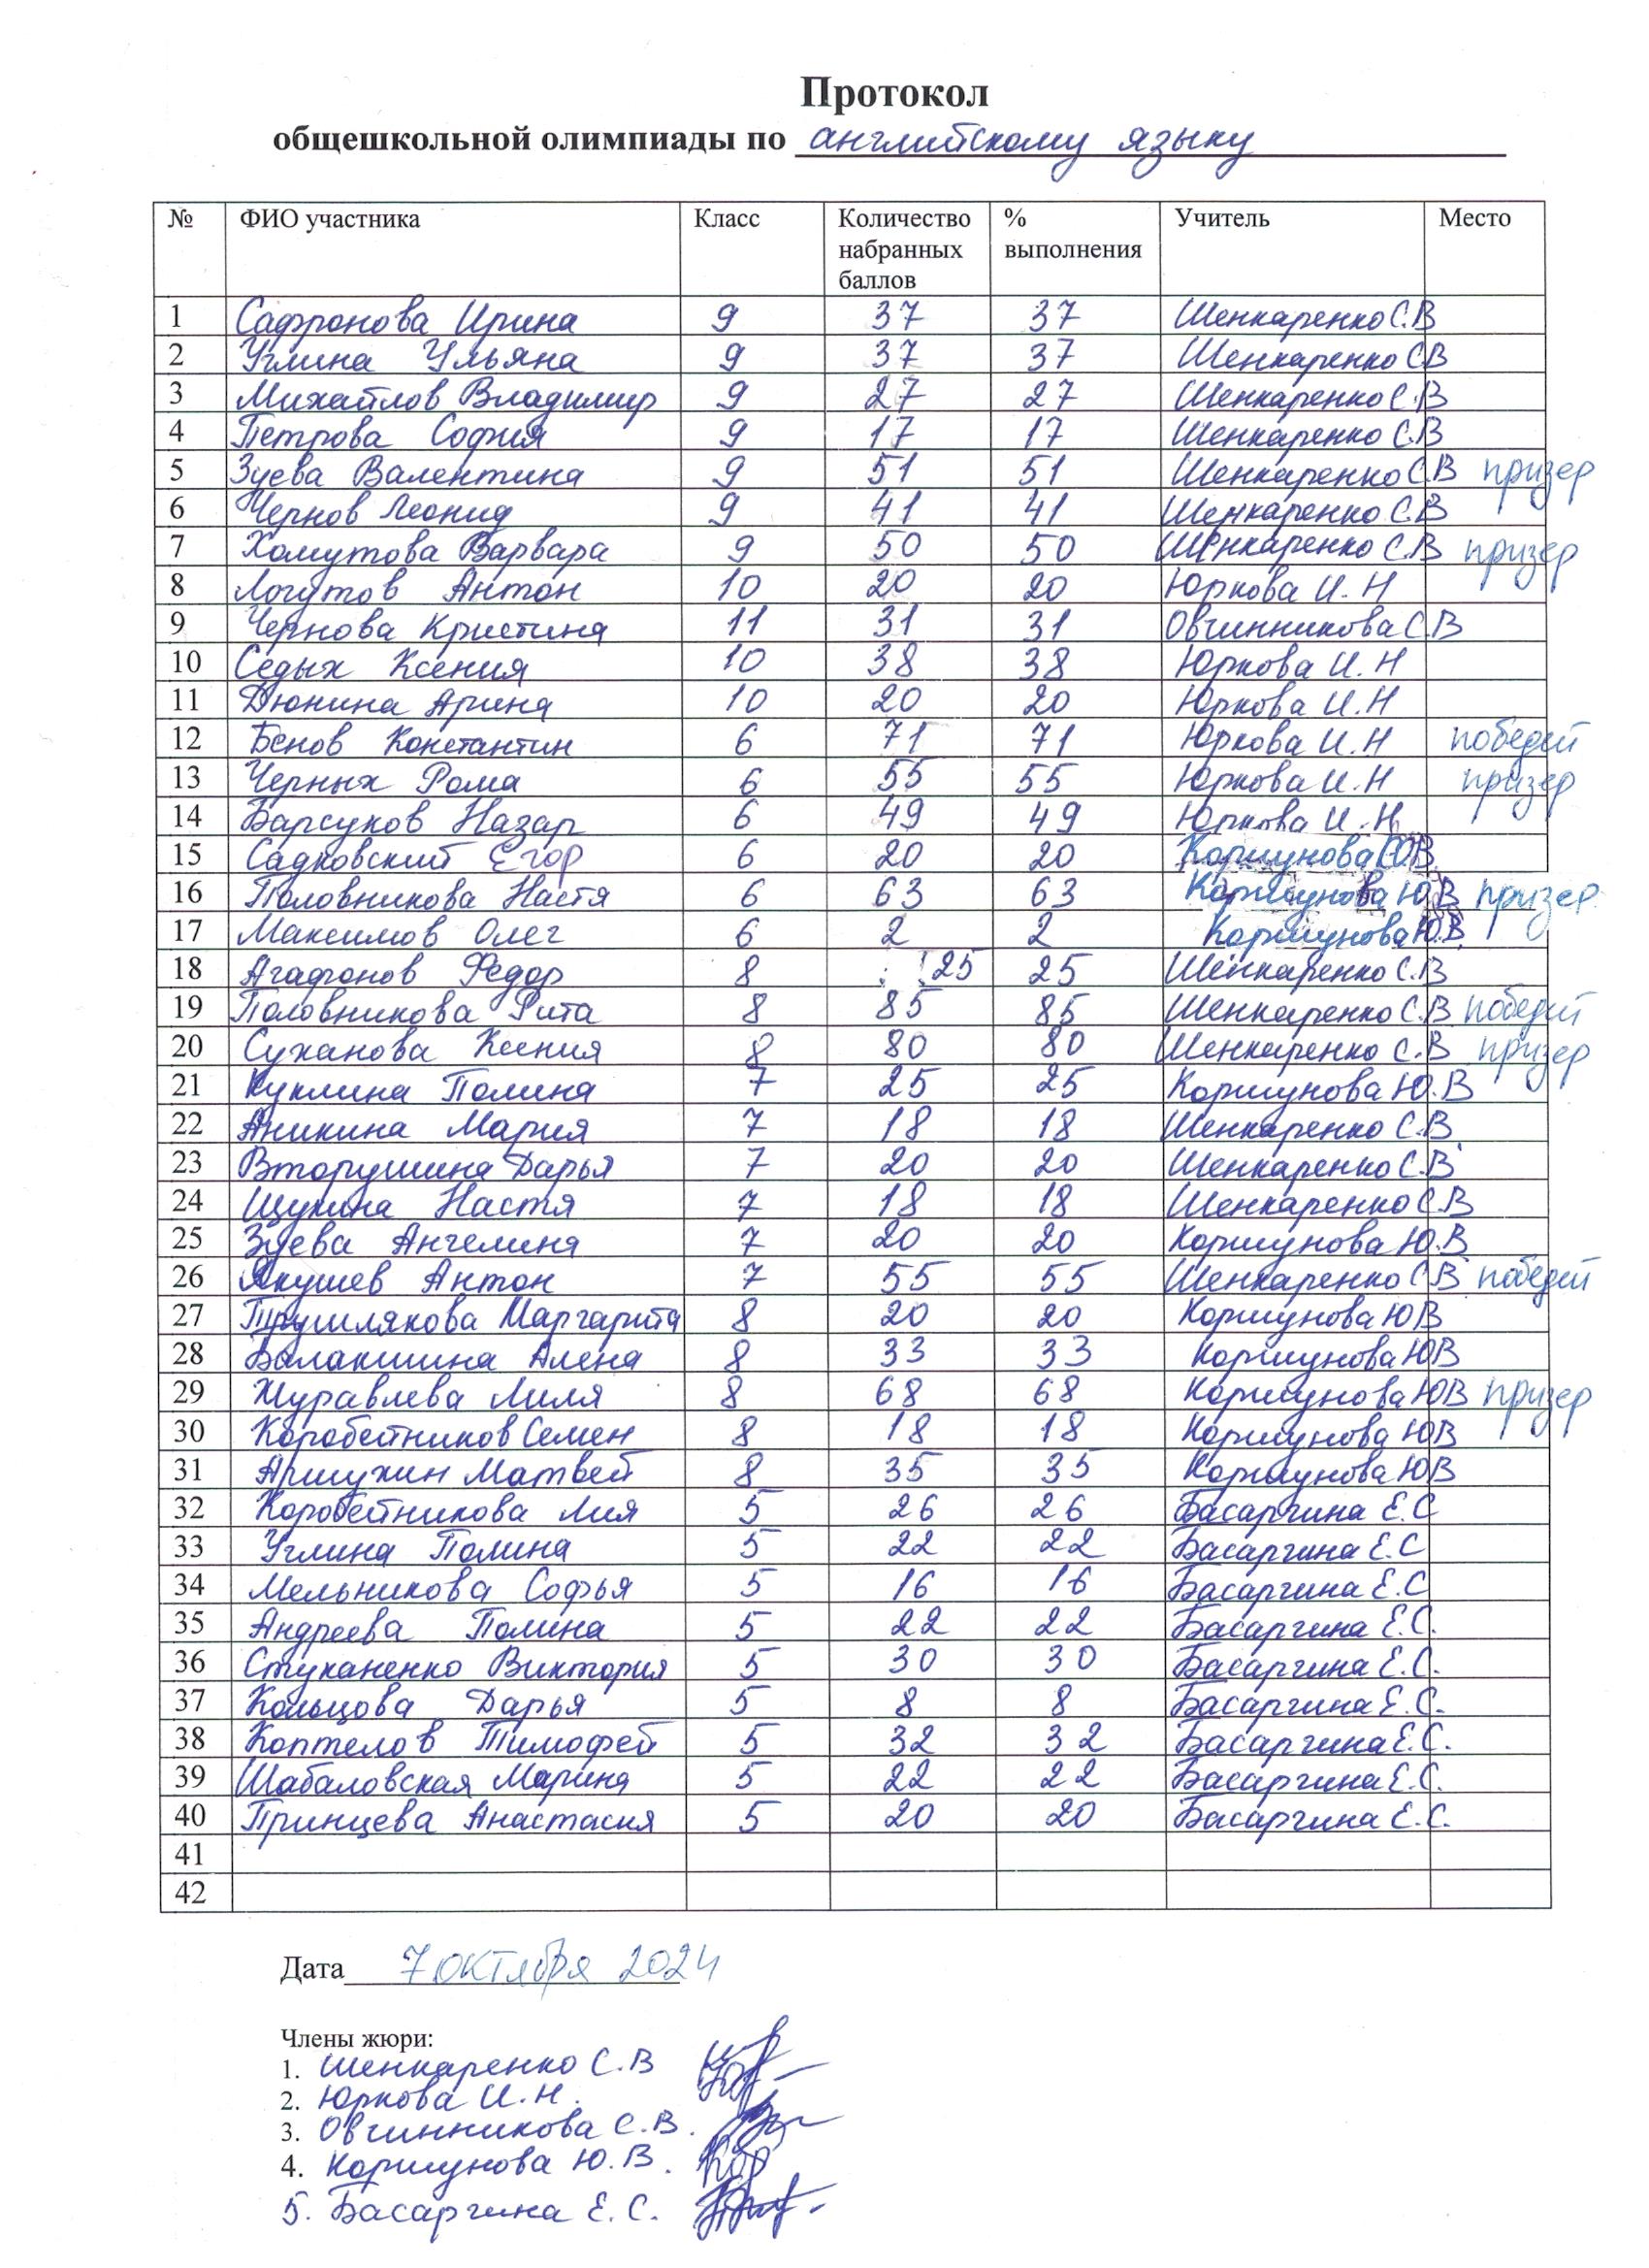 Протокол
общешкольной олимпиады по английскому языку
№ ФИО участника Класс Количество набранных баллов % выполнения Учитель Место
1 Сафронова Ирина 9 37 37 Шенкаренко С.В
2 Углина Ульяна 9 37 37 Шенкаренко С.В
3 Михайлов Владимир 9 27 27 Шенкаренко С.В
4 Петрова София 9 17 17 Шенкаренко С.В
5 Зуева Валентина 9 51 51 Шенкаренко С.В призер
6 Чернов Леонид 9 41 41 Шенкаренко С.В
7 Хомутова Варвара 9 50 50 Шенкаренко С.В призер
8 Логутов Антон 10 20 20 Юркова И.Н
9 Чернова Кристина 11 31 31 Овчинникова С.В
10 Седых Ксения 10 38 38 Юркова И.Н
11 Дюнина Арина 10 20 20 Юркова И.Н
12 Бенов Константин 6 71 71 Юркова И.Н победит
13 Черных Рома 6 55 55 Юркова И.Н призер
14 Барсуков Назар 6 49 49 Юркова И.Н
15 Садковский Егор 6 20 20 Коршунова Ю.В
16 Половникова Настя 6 63 63 Коршунова Ю.В призер
17 Максимов Олег 6 2 2 Коршунова Ю.В
18 Агафонов Федор 8 25 25 Шенкаренко С.В
19 Половникова Рита 8 85 85 Шенкаренко С.В победит
20 Суханова Ксения 8 80 80 Шенкаренко С.В призер
21 Куклина Полина 7 25 25 Коршунова Ю.В
22 Аникина Мария 7 18 18 Шенкаренко С.В
23 Вторушина Дарья 7 20 20 Шенкаренко С.В
24 Щукина Настя 7 18 18 Шенкаренко С.В
25 Зуева Ангелина 7 20 20 Коршунова Ю.В
26 Якушев Антон 7 55 55 Шенкаренко С.В победит
27 Трушлякова Маргарита 8 20 20 Коршунова ЮВ
28 Балакшина Алена 8 33 33 Коршунова ЮВ
29 Журавлева Лиля 8 68 68 Коршунова ЮВ призер
30 Коробейников Семен 8 18 18 Коршунова ЮВ
31 Аршухин Матвей 8 35 35 Коршунова ЮВ
32 Коробейникова Лия 5 26 26 Басаргина Е.С
33 Углина Полина 5 22 22 Басаргина Е.С
34 Мельникова Софья 5 16 16 Басаргина Е.С
35 Андреева Полина 5 22 22 Басаргина Е.С.
36 Стуканенко Виктория 5 30 30 Басаргина Е.С.
37 Кольцова Дарья 5 8 8 Басаргина Е.С.
38 Коптелов Тимофей 5 32 32 Басаргина Е.С.
39 Шабаловская Марина 5 22 22 Басаргина Е.С.
40 Принцева Анастасия 5 20 20 Басаргина Е.С.
41
42
Дата 7 октября 2024
Члены жюри:
1. Шенкаренко С.В
2. Юркова И.Н.
3. Овчинникова С.В.
4. Коршунова Ю.В.
5. Басаргина Е.С.